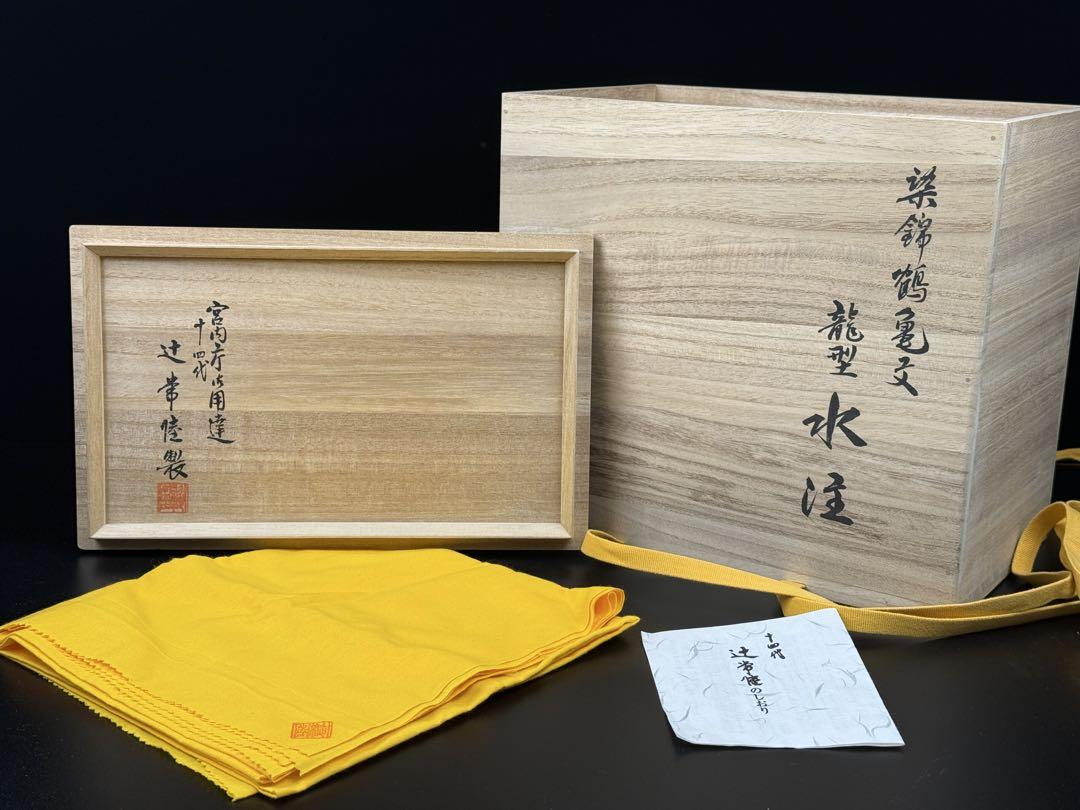 染錦鶴亀文
龍型
水注
宮内庁御用達
十四代
辻常陸製
十四代
辻常陸のしおり